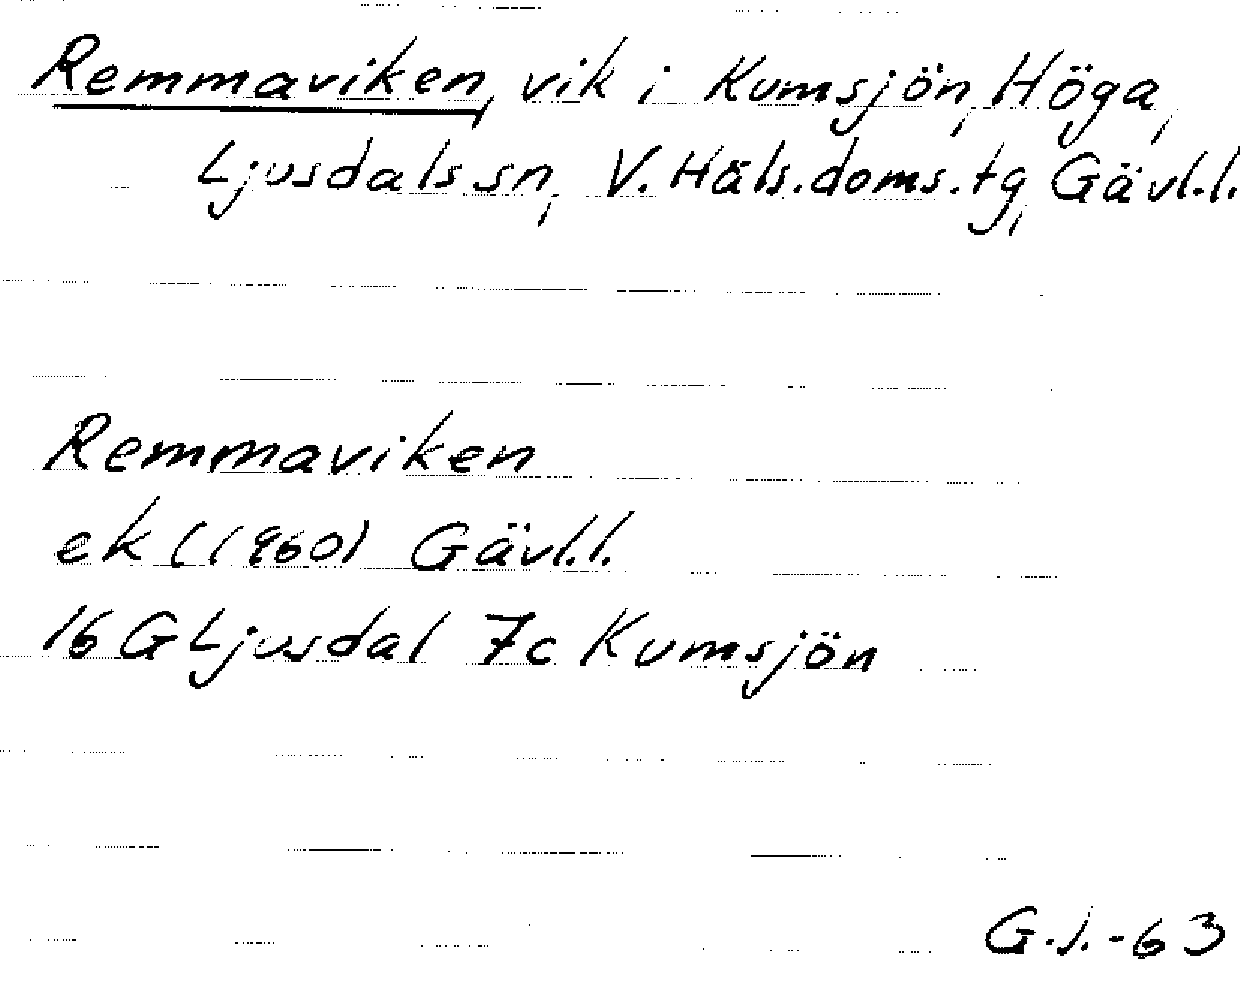 Remmaviken, vik i Kumsjön, Höga,
Ljusdals sn, V. Häls. doms. tg, Gävl.l.
Remmaviken
ek (1960) Gävl.l.
16 G Ljusdal 7c Kumsjön
G.J.-63